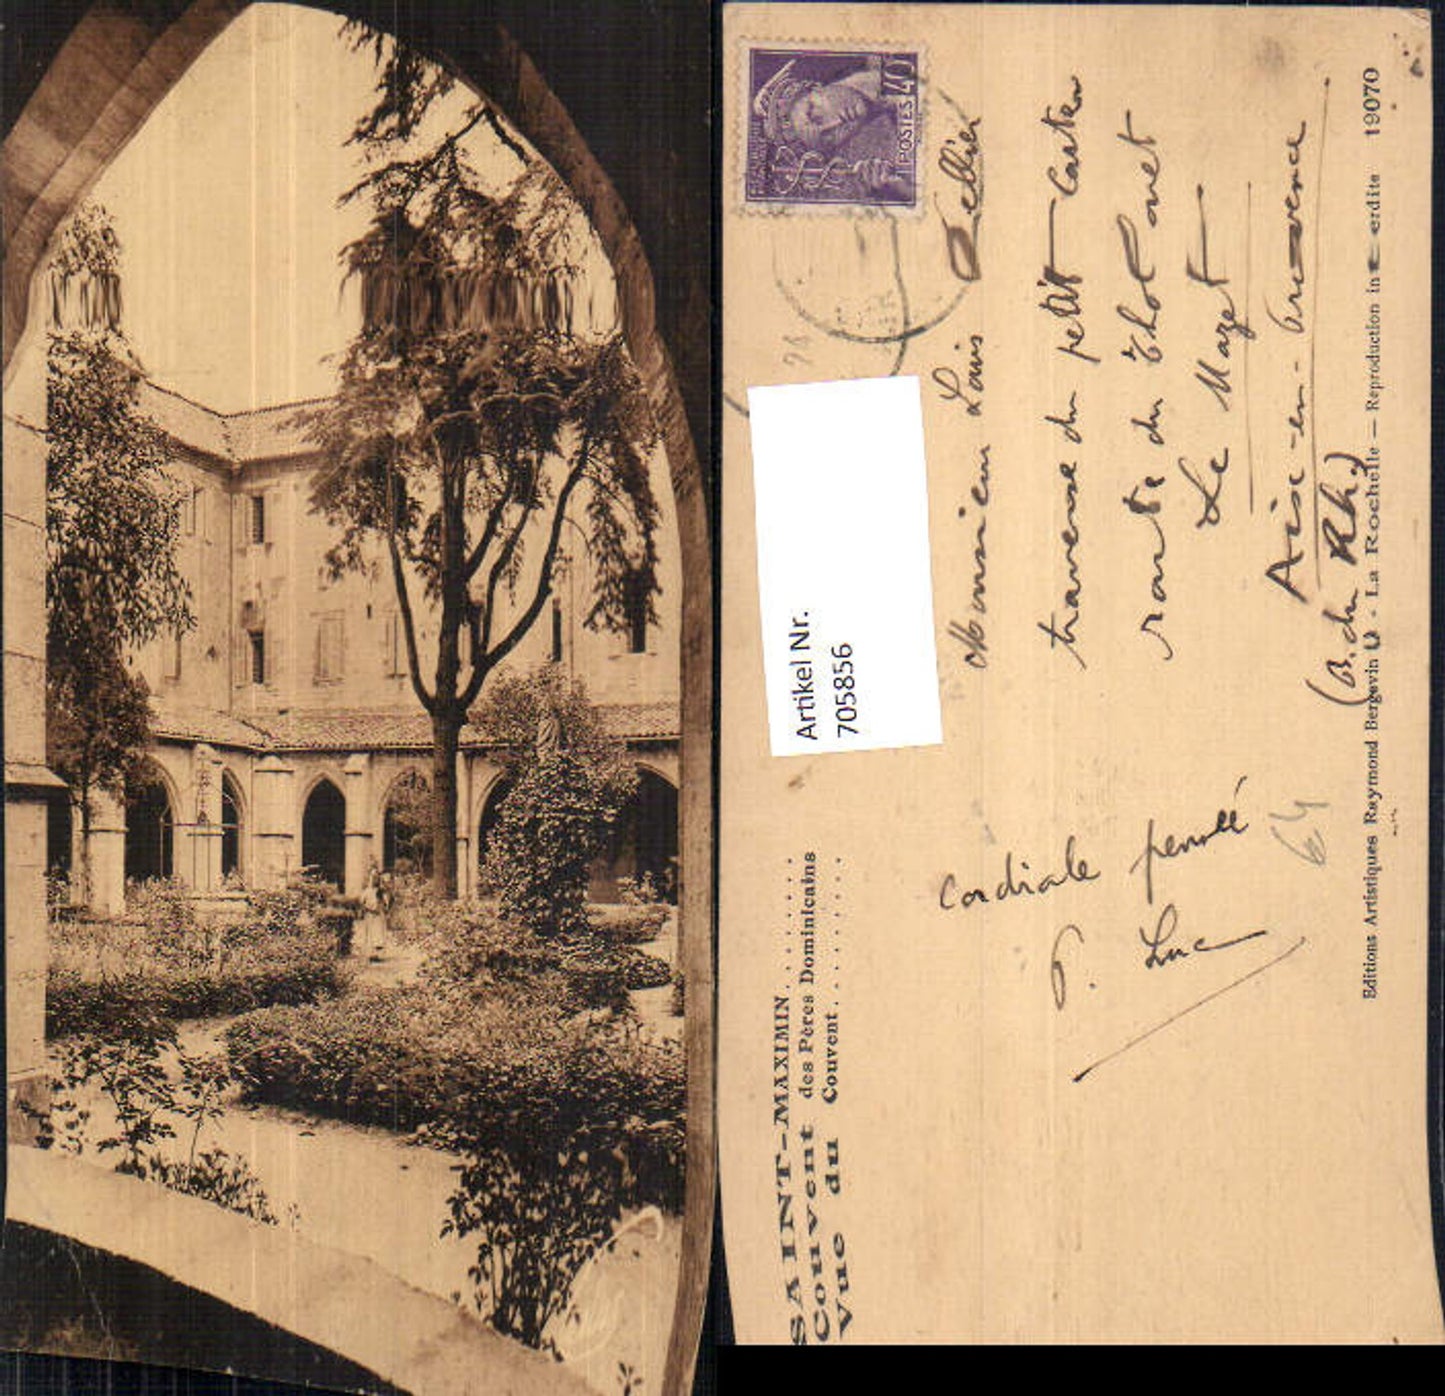 SAINT-MAXIMIN..........
Couvent des Pères Dominicains
Vue du Couvent..........
POSTES 40
Artikel Nr.
7058856
Monsieur Louis Tellier
traverse du petit Carten
route du Tholonet
Le Mazet
Aix-en-Provence
(B. du Rh.)
Cordiale pensée
P. Luc
64
Editions Artistiques Raymond Bergevin - La Rochelle — Reproduction interdite 19070